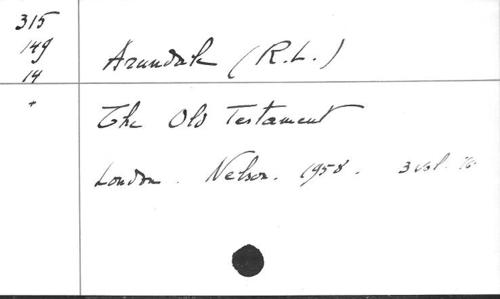 315
149
14
+
Arundale (R.L.)
The Old Testament
London. Nelson. 1958. 3 vol.